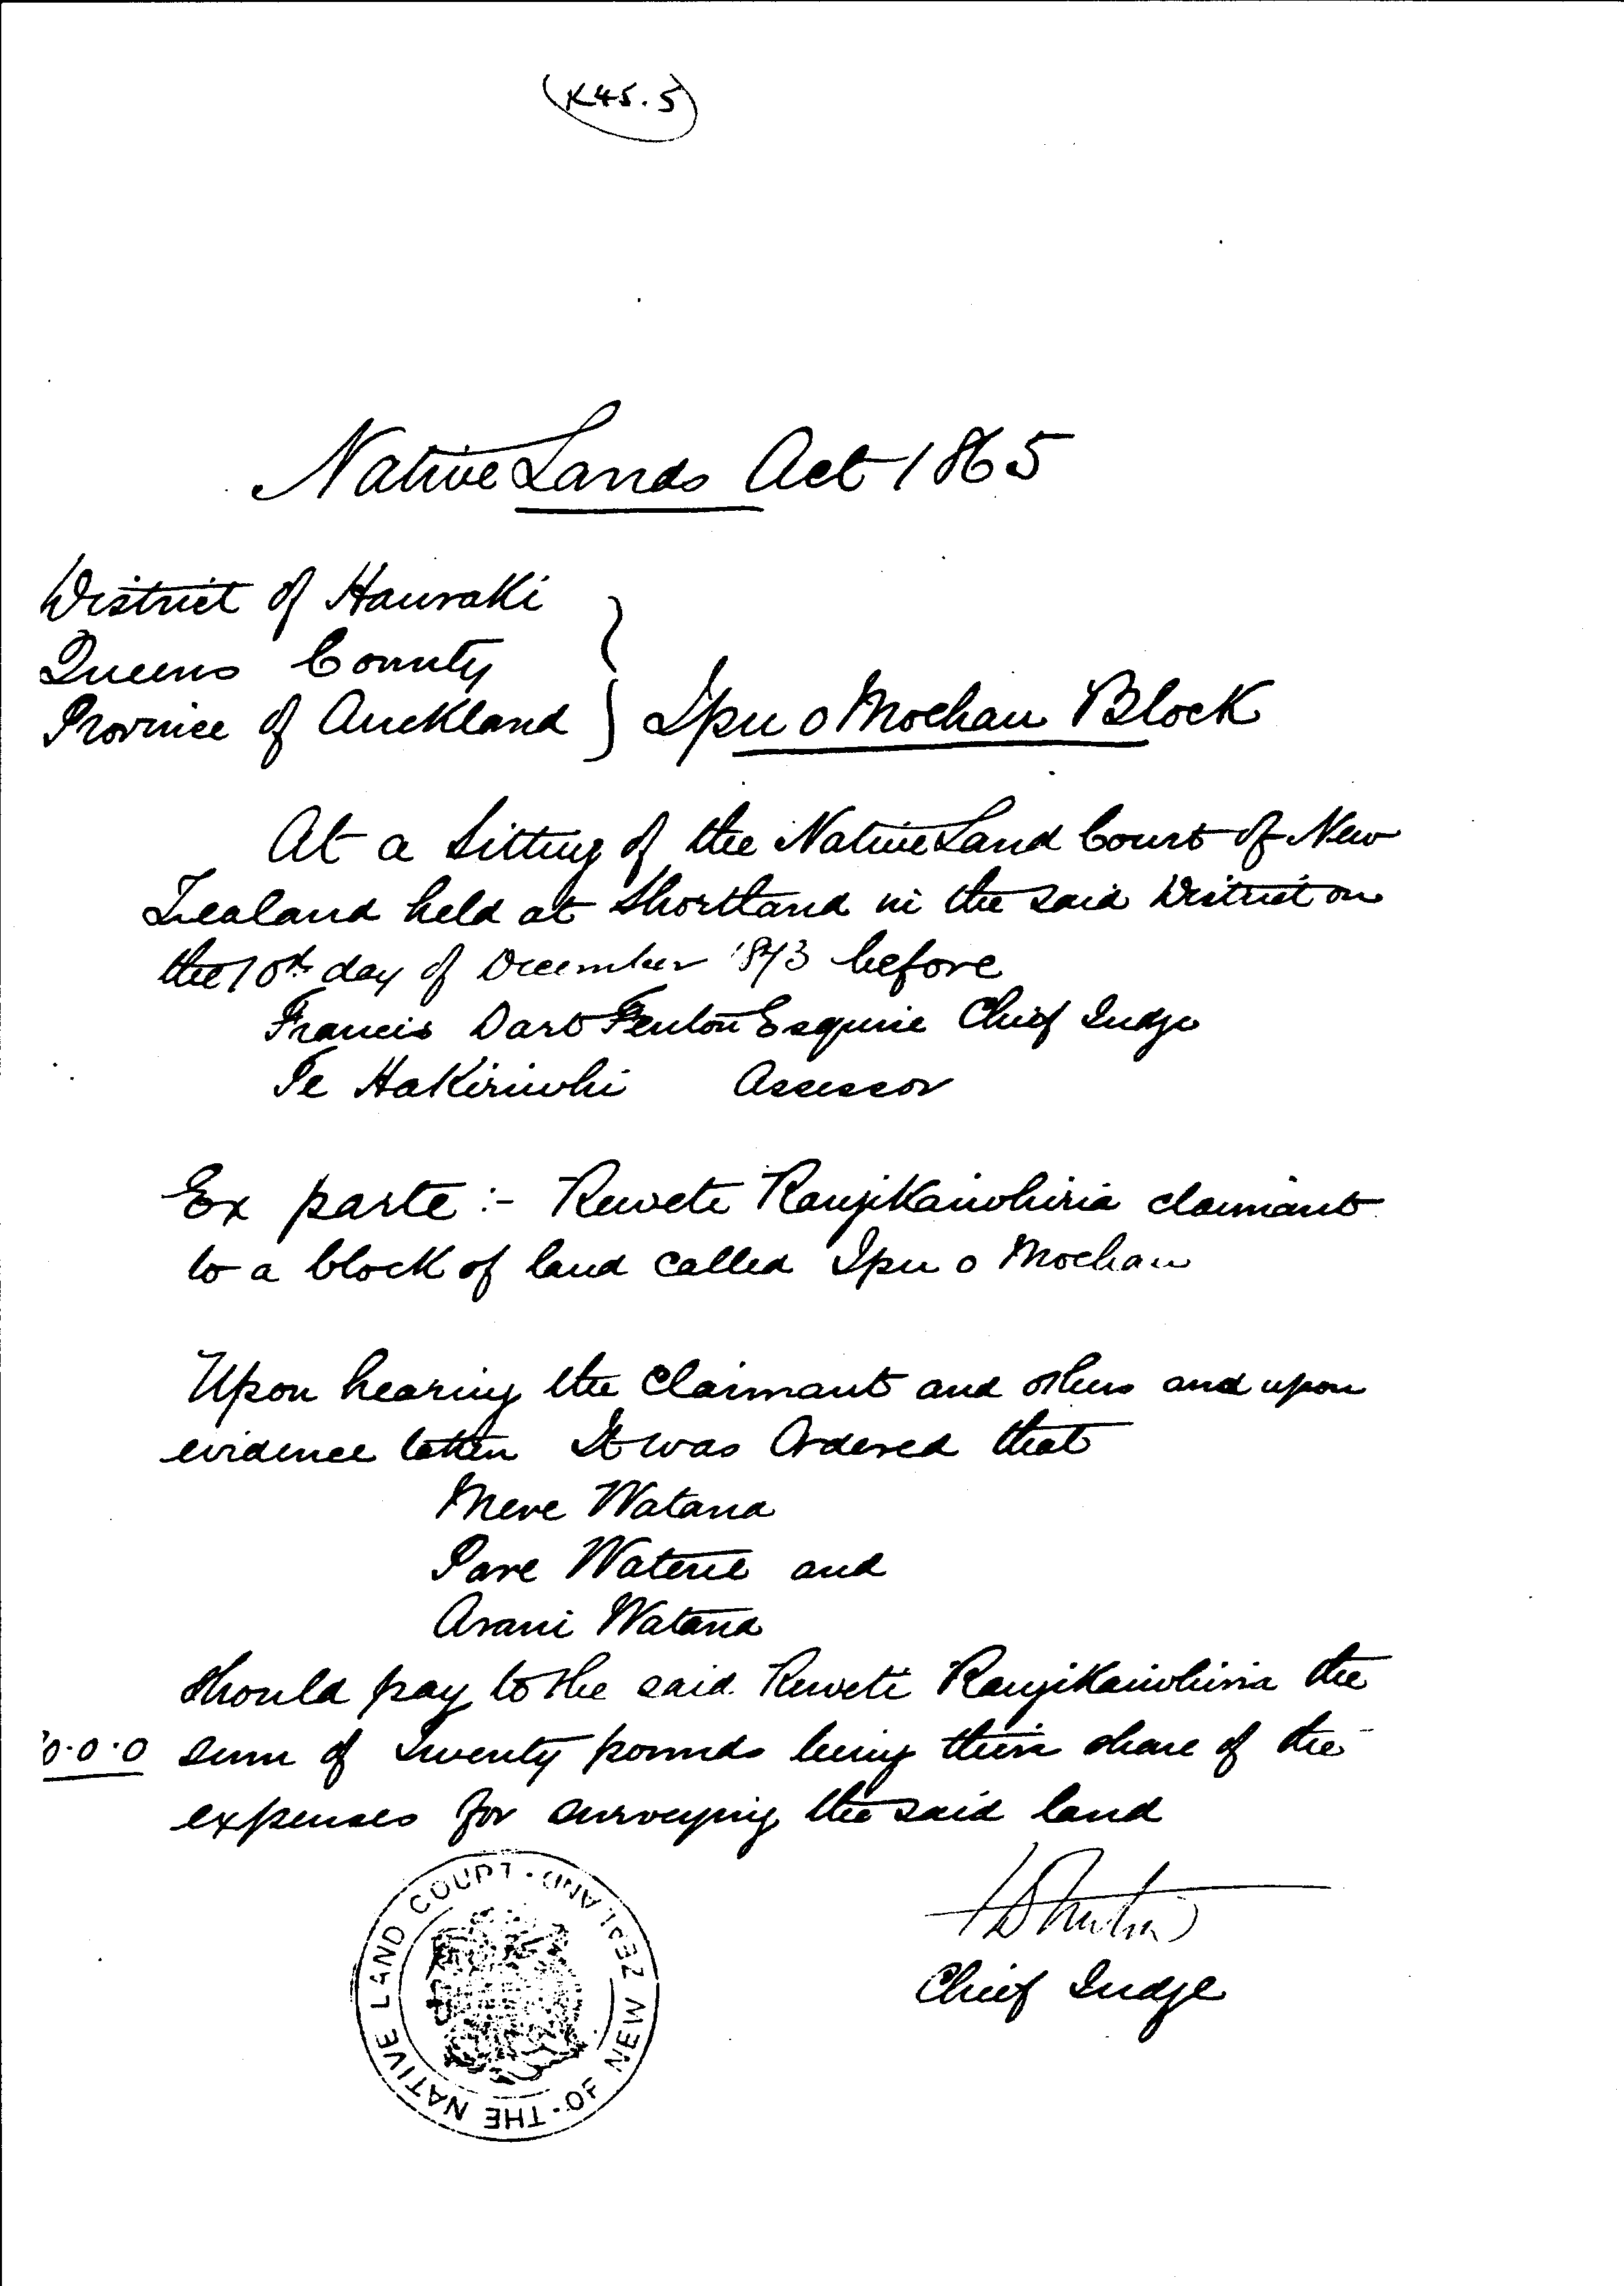 (K45.5)
Native Lands Act 1865
District of Hauraki
Queens County
Province of Auckland } Ipu o Moehau Block
At a Sitting of the Native Land Court of New
Zealand held at Shortland in the said District on
the 10th day of December 1873 before
Francis Dart Fenton Esquire Chief Judge
Te Hakiriwhi Assessor
Ex parte :- Rewete Rangikaiwhiria claimant
to a block of land called Ipu o Moehau
Upon hearing the Claimant and others and upon
evidence taken It was Ordered that
Mere Watana
Pare Watene and
Arani Watana
should pay to the said Reweti Rangikaiwhiria the
0.0.0 sum of Twenty pounds being their share of the
expenses for surveying the said land
THE NATIVE LAND COURT · OF NEW ZEALAND ·
FD Fenton
Chief Judge